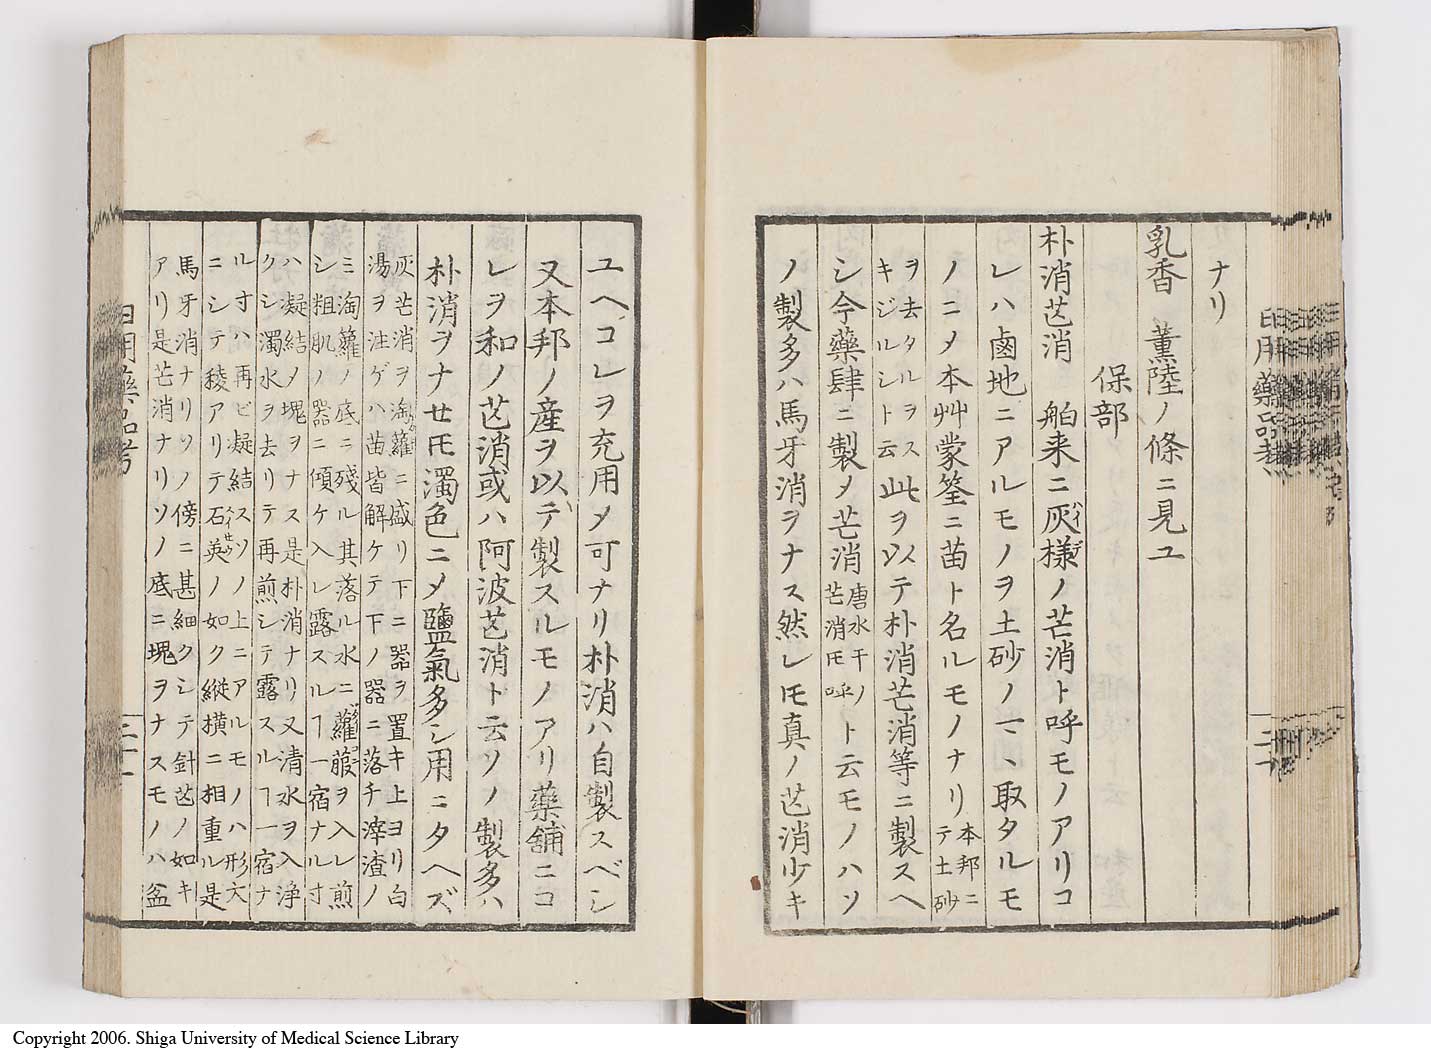 ナリ
乳香　薫陸ノ條ニ見ユ
保部
朴消芒消　舶来ニ灰様ノ芒消ト呼モノアリコ
ハイデ
レハ鹵地ニアルモノヲ土砂ノマヽ取タルモ
ノニメ本艸蒙筌ニ苗ト名ルモノナリ
本邦ニ
テ土砂
ヲ去タルヲス
キジルシト云
此ヲ以テ朴消芒消等ニ製スベ
シ今藥肆ニ製メ芒消
唐水干ノ
芒消モ呼
ト云モノハソ
ノ製多ハ馬牙消ヲナス然レモ真ノ芒消少キ
ユヘコレヲ充用メ可ナリ朴消ハ自製スベシ
又本邦ノ産ヲ以テ製スルモノアリ藥舗ニコ
レヲ和ノ芒消或ハ阿波芒消ト云ソノ製多ハ
朴消ヲナセモ濁色ニメ鹽氣多シ用ニタヘズ
灰芒消ヲ淘蘿ニ盛リ下ニ器ヲ置キ上ヨリ白
湯ヲ注ゲハ苗皆解ケテ下ノ器ニ落チ滓渣ノ
ミ淘蘿ノ底ニ殘ル其落ル水ニ蘿菔ヲ入レ煎
シ粗肌ノ器ニ傾ケ入レ露スルヿ一宿ナル寸
ハ凝結メ塊ヲナス是朴消ナリ又清水ヲ入浄
クシ濁水ヲ去リテ再煎シテ露スルヿ一宿ナ
ル寸ハ再ビ凝結スソノ上ニアルモノハ形大
ニシテ稜アリテ石英ノ如ク縦横ニ相重ル是
馬牙消ナリソノ傍ニ甚細クシテ針芒ノ如キ
アリ是芒消ナリソノ底ニ塊ヲナスモノハ盆
日用藥品考
二十一
Copyright 2006. Shiga University of Medical Science Library